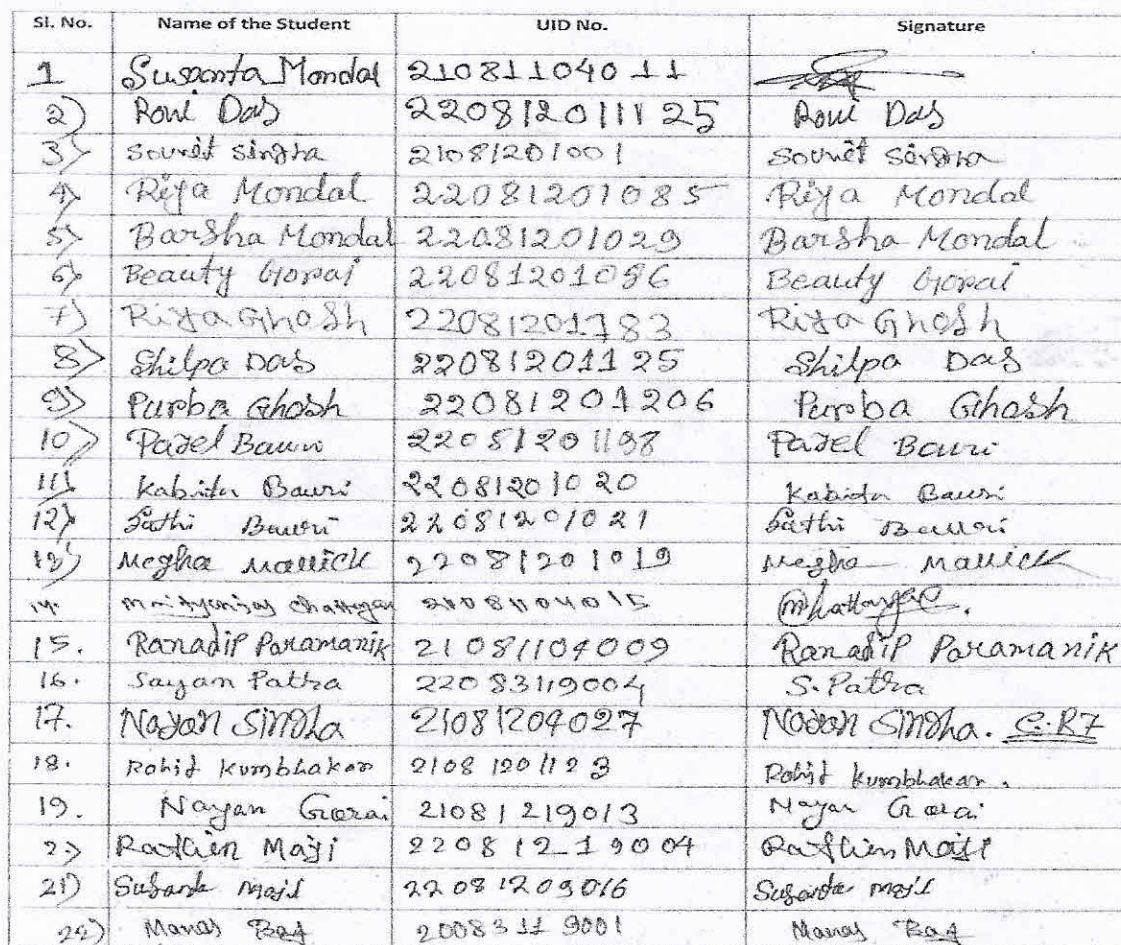 Sl. No. Name of the Student UID No. Signature
1 Susanta Mondal 21081104011
2) Roni Das 220812011125 Roni Das
3) Sourët Singha 21081201001 Sourët Singha
4) Riya Mondal 22081201085 Riya Mondal
5) Barsha Mondal 22081201029 Barsha Mondal
6) Beauty Gorai 22081201086 Beauty Gorai
7) Riya Ghosh 22081201183 Riya Ghosh
8) Shilpa Das 22081201125 Shilpa Das
9) Purba Ghosh 22081201206 Purba Ghosh
10) Payel Bauri 22081201198 Payel Bauri
11) Kabita Bauri 22081201020 Kabita Bauri
12) Sathi Bauri 22081201021 Sathi Bauri
13) Megha Mallick 22081201019 Megha Mallick
14. 21081104015
15. Ranadip Paramanik 21081104009 Ranadip Paramanik
16. Sayan Patra 22083119004 S. Patra
17. Nayan Singha 21081204027 Nayan Singha.
18. Rohit Kumbhakar 21081201123 Rohit Kumbhakar.
19. Nayan Gorai 21081219013 Nayan Gorai
2) Maji 22081219004 Maji
21) Susanta Maji 22081209016 Susanta Maji
22) Manas 20083119001 Manas